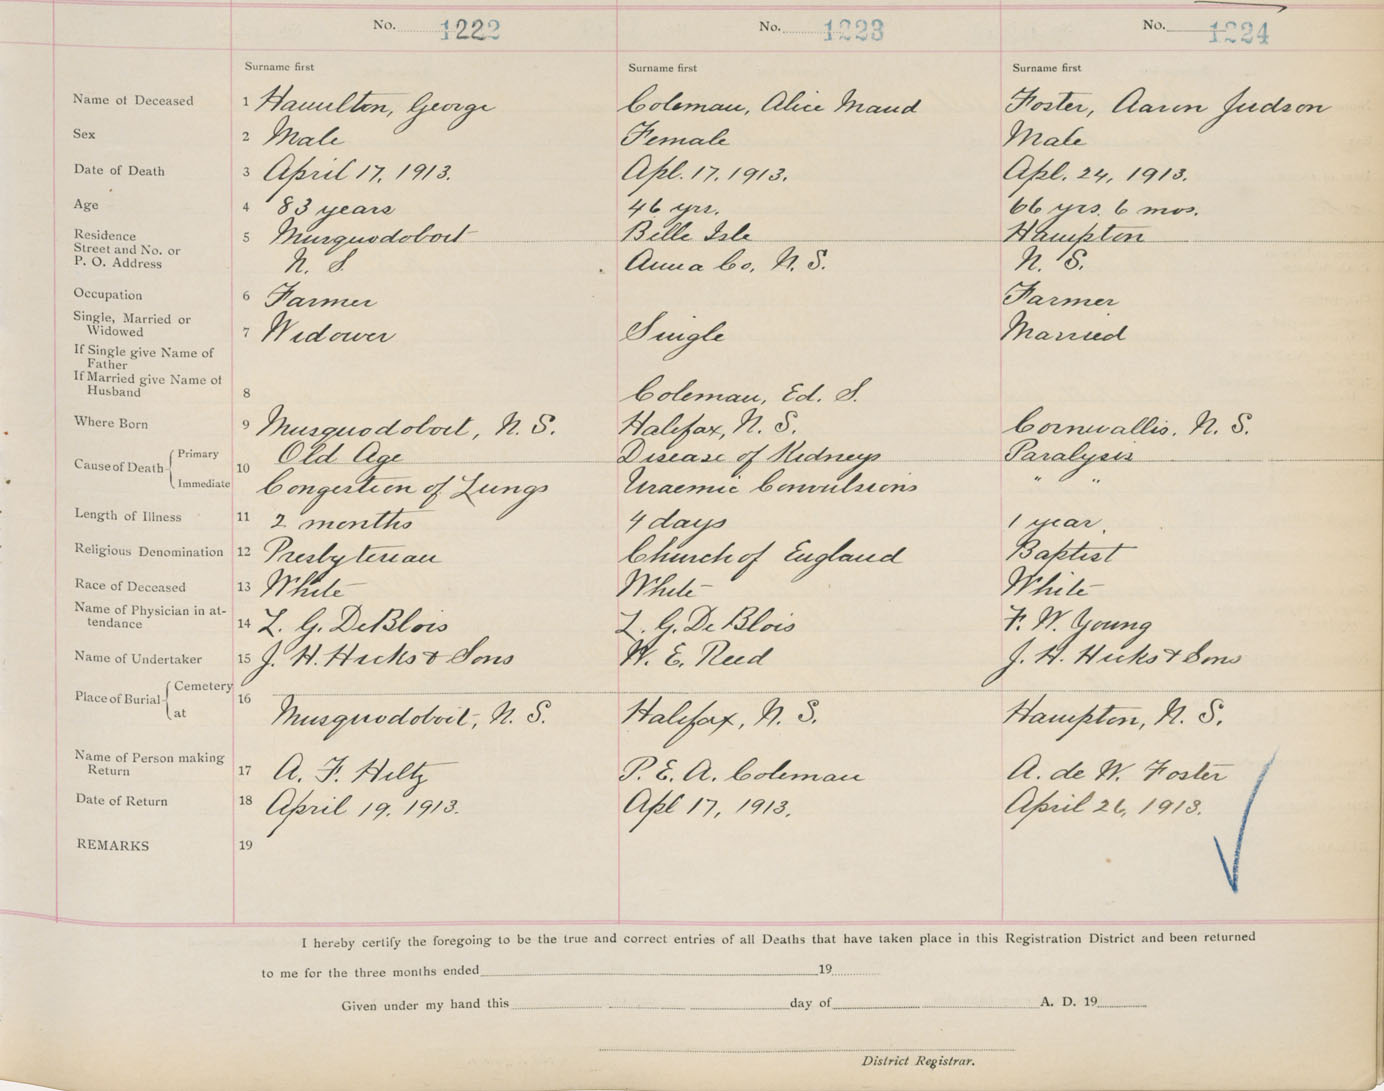 No. 1222 No. 1223 No. 1224
Surname first Surname first Surname first
Name of Deceased 1 Hamilton, George Coleman, Alice Maud Foster, Aaron Judson
Sex 2 Male Female Male
Date of Death 3 April 17, 1913. Apl. 17, 1913. Apl. 24, 1913.
Age 4 83 years 46 yrs. 66 yrs. 6 mos.
Residence 5 Musquodoboit Belle Isle Hampton
Street and No. or
P. O. Address N. S. Anna Co, N. S. N. S.
Occupation 6 Farmer Farmer
Single, Married or
Widowed 7 Widower Single Married
If Single give Name of
Father
If Married give Name of
Husband 8 Coleman, Ed. S.
Where Born 9 Musquodoboit, N. S. Halifax, N. S. Cornwallis, N. S.
Cause of Death Primary 10 Old Age Disease of Kidneys Paralysis
Immediate Congestion of Lungs Uraemic Convulsions " "
Length of Illness 11 2 months 4 days 1 year
Religious Denomination 12 Presbyterian Church of England Baptist
Race of Deceased 13 White White White
Name of Physician in at-
tendance 14 L. G. DeBlois L. G. DeBlois F. W. Young
Name of Undertaker 15 J. H. Hicks & Sons W. E. Reed J. H. Hicks & Sons
Place of Burial Cemetery 16
at Musquodoboit, N. S. Halifax, N. S. Hampton, N. S.
Name of Person making
Return 17 A. F. Hiltz P. E. A. Coleman A. de W. Foster
Date of Return 18 April 19, 1913. Apl 17, 1913. April 26, 1913.
REMARKS 19
I hereby certify the foregoing to be the true and correct entries of all Deaths that have taken place in this Registration District and been returned
to me for the three months ended 19
Given under my hand this day of A. D. 19
District Registrar.